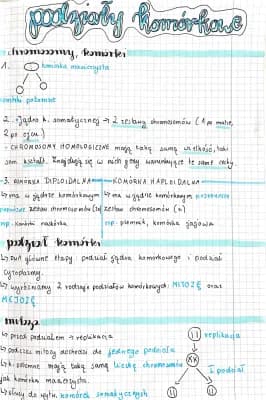 podziały komórkowe
chromosomy, komórki
1. komórka macierzysta
komórki potomne
2. jądro k. somatycznej → 2 zestawy chromosomów (1 po matce,
2 po ojcu)
- CHROMOSOMY HOMOLOGICZNE mają taką samą wielkość, taki
sam kształt. Znajdują się w nich geny warunkujące te same cechy.
3. KOMÓRKA DIPLOIDALNA — KOMÓRKA HAPLOIDALNA
↳ ma w jądrze komórkowym ↳ ma w jądrze komórkowym pojedynczy
podwójny zestaw chromosomów (2n) zestaw chromosomów (n)
np. komórki naskórka np. plemnik, komórka jajowa
podział komórki
↳ dwa główne etapy: podział jądra komórkowego i podział
cytoplazmy.
↳ wyróżniamy 2 rodzaje podziałów komórkowych: MITOZĘ oraz
MEJOZĘ
mitoza
↳ przed podziałem → replikacja
replikacja
↳ podczas mitozy dochodzi do jednego podziału
↳ k. potomne mają taką samą liczbę chromosomów
I podział
jak komórka macierzysta.
↳ służy do wytw. komórek somatycznych